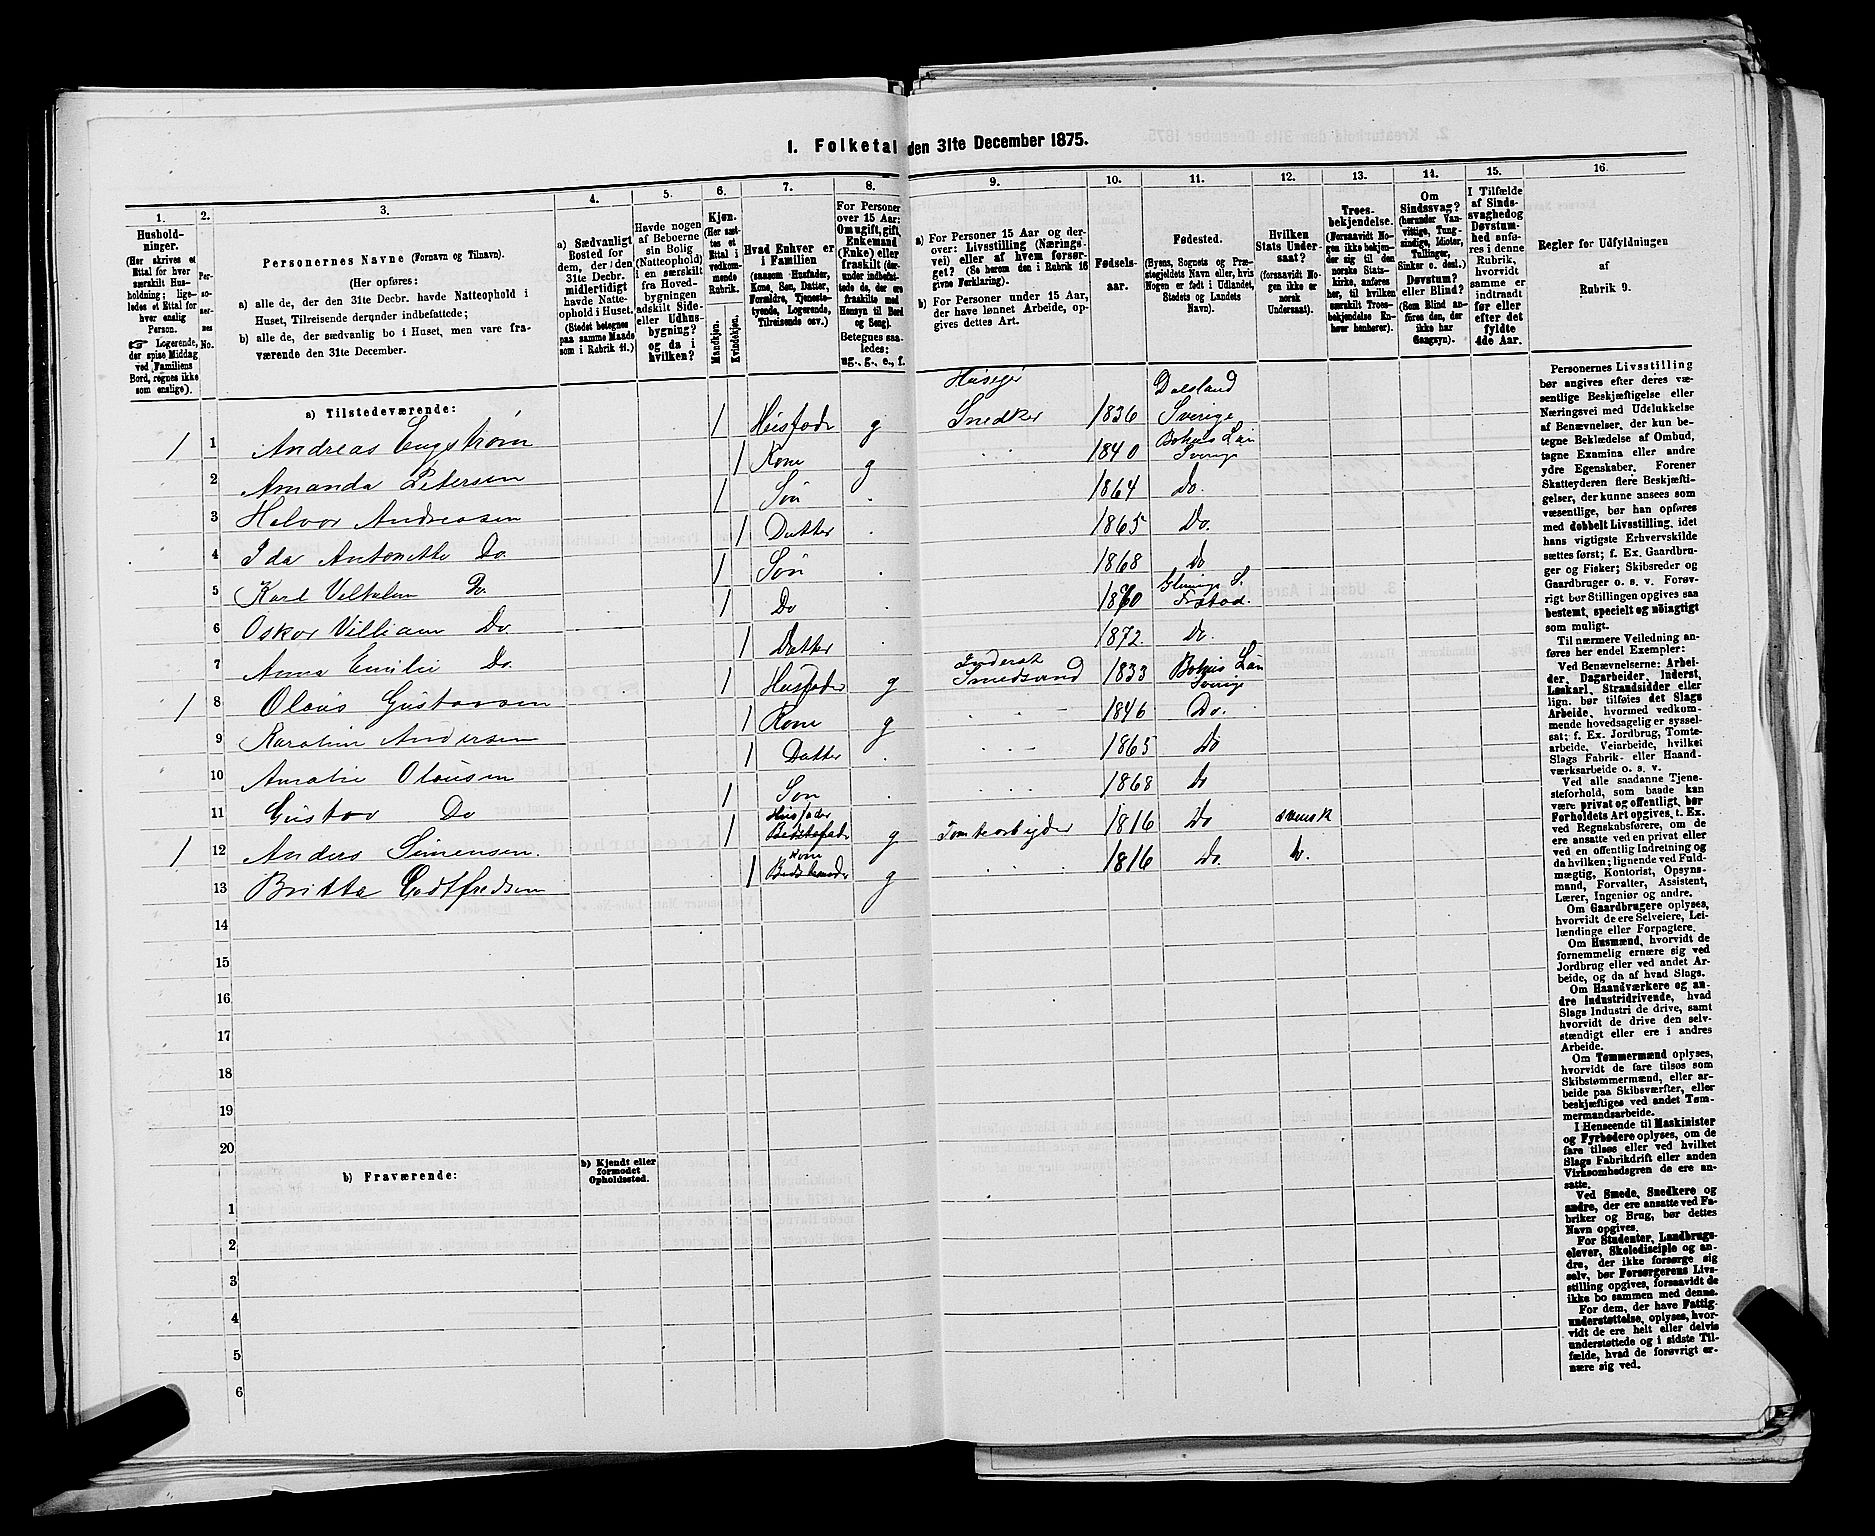 1. Folketal den 31te December 1875.
1. 2. 3. 4. 5. 6. 7. 8. 9. 10. 11. 12. 13. 14. 15. 16.
Husholdninger.
(Her skrives et
Ettal for hver
særskilt Husholdning; ligeledes et Ettal for
hver enslig
Person.
☞ Logerende,
der spise Middag
ved Familiens
Bord, regnes ikke
som enslige).
Personernes No.
Personernes Navne (Fornavn og Tilnavn).
(Her opføres:
a) alle de, der den 31te Decbr. havde Natteophold i
Huset, Tilreisende derunder indbefattede;
b) alle de, der sædvanlig bo i Huset, men vare fraværende den 31te December.
a) Sædvanligt
Bosted for
dem, der den
31te Decbr.
midlertidigt
havde Natteophold i Huset.
(Stedet betegnes
paa samme Maade
som i Rubrik 11.)
Havde nogen
af Beboerne
sin Bolig
(Natteophold)
i en særskilt
fra Hovedbygningen
adskilt Side-
eller Udhusbygning?
og da i
hvilken?
Kjøn.
(Her sættes et
Ettal i
vedkommende
Rubrik.
Mandkjøn.
Kvindekjøn.
Hvad Enhver er
i Familien
(saasom Husfader,
Kone, Søn, Datter,
Forældre, Tjenestetyende, Logerende,
Tilreisende osv.)
For Personer
over 15 Aar:
Om ugift, gift,
Enkemand
(Enke) eller
fraskilt (derunder indbefattede de, der ere
fraskilte med
Hensyn til Bord
og Seng).
Betegnes saaledes:
ug., g., e., f.
a) For Personer 15 Aar og derover: Livsstilling (Næringsvei) eller af hvem forsørget? (Se herom den i Rubrik 16
givne Forklaring.)
b) For Personer under 15 Aar,
der have lønnet Arbeide, opgives dettes Art.
Fødselsaar.
Fødested.
(Byens, Sognets og Præstegjeldets Navn eller, hvis
Nogen er født i Udlandet,
Stedets og Landets
Navn).
Hvilken
Stats Undersaat?
(forsaavidt Nogen ikke er
norsk
Undersaat).
Troesbekjendelse.
(Forsaavidt Nogen ikke bekjender sig til den
norske Statskirke, anføres
her, til hvilken
særskilt Troesbekjendelse Enhver henhører).
Om
Sindssvag?
(herunder Vanvittige, Tungsindige, Idioter,
Tullinger,
Sinker o. desl.)
Døvstum?
eller Blind?
(Som Blind anføres den, der
ikke har
Gangsyn).
I Tilfælde
af Sindssvaghed og
Døvstumhed anføres i denne
Rubrik,
hvorvidt
samme er
indtraadt
før eller
efter det
fyldte
4de Aar.
Regler for Udfyldningen
af
Rubrik 9.
a) Tilstedeværende:
1 1 Andreas Engstrøm 1 Husfader g Huseier Snedker 1836 Dalsland Sverige
2 Amanda Petersen 1 Kone g 1840 Bohus Län Sverige
3 Halvor Andreasen 1 Søn 1864 Do.
4 Ida Antonette Do 1 Datter 1865 Do.
5 Karl Vilhelm Do. 1 Søn 1868 Do
6 Oskar Villiam Do. 1 Do 1870 Glemmige S. Frstad.
7 Anna Emilie Do. 1 Datter 1872 Do.
1 8 Olaus Gustavsen 1 Husfader g Inderst Smedsvend 1833 Bohus Län Sverige
9 Karoline Andersen 1 Kone g 1846 Do.
10 Amalie Olausen 1 Datter 1865 Do
11 Gustav Do 1 Søn 1868 Do
1 12 Anders Simensen. 1 Husfader Bedstefader g Tomtearbeider 1816 Do svensk
13 Britta Godtfredsen 1 Kone Bedstemoder g 1816 Do. Do.
14
15
16
17
18
19
20
b) Fraværende:
b) Kjendt eller
formodet
Opholdssted.
1
2
3
4
5
6
Personernes Livsstilling
bør angives efter deres væsentlige Beskjæftigelse eller
Næringsvei med Udelukkelse
af Benævnelser, der kun betegne Beklædelse af Ombud,
tagne Examina eller andre
ydre Egenskaber. Forener
Skatteyderen flere Beskjæftigelser, der kunne ansees som
væsentlige, bør han opføres
med dobbelt Livsstilling, idet
hans vigtigste Erhvervskilde
sættes først; f. Ex. Gaardbruger og Fisker; Skibsreder og
Gaardbruger o. s. v. Forøvrigt bør Stillingen opgives saa
bestemt, specielt og nöiagtigt
som muligt.
Til nærmere Veiledning anføres her endel Exempler:
Ved Benævnelserne: Arbeider, Dagarbeider, Inderst,
Løskarl, Strandsidder eller
lign. bør tilføies det Slags
Arbeide, hvormed vedkommende hovedsagelig er sysselsat; f. Ex. Jordbrug, Tomtearbeide, Veiarbeide, hvilket
Slags Fabrik- eller Haandværksarbeide o. s. v.
Ved alle saadanne Tjenesteforhold, som baade kan
være privat og offentligt, bør
Forholdets Art opgives, t. Ex.
ved Regnskabsførere, om de
ere ansatte ved en privat eller
ved en offentlig Indretning og
da hvilken; lignende ved Fuldmægtig, Kontorist, Opsynsmand, Forvalter, Assistent,
Lærer, Ingeniør og andre.
Om Gaardbrugere oplyses,
hvorvidt de ere Selveiere, Leilændinge eller Forpagtere.
Om Husmænd, hvorvidt de
fornemmelig ernære sig ved
Jordbrug eller ved andet Arbeide, og da af hvad Slags.
Om Haandværkere og andre Industridrivende, hvad
Slags Industri de drive, samt
hvorvidt de drive den selvstændigt eller ere i andres
Arbeide.
Om Tømmermænd oplyses,
hvorvidt de fare tilsøs som
Skibstømmermænd, eller arbeide paa Skibsværfter, eller
beskjæftiges ved andet Tømmermandsarbeide.
I Henseende til Maskinister
og Fyrbødere oplyses, om de
fare tilsøs eller ved hvilket
Slags Fabrikdrift eller anden
Virksomhedsgren de ere ansatte.
Ved Smede, Snedkere og
andre, der ere ansatte ved Fabriker og Brug, bør dettes
Navn opgives.
For Studenter, Landbrugselever, Skoledisciple og andre, der ikke forsørge sig
selv, bør Forsørgerens Livsstilling opgives, forsaavidt de
ikke bo sammen med denne.
For dem, der have Fattigunderstøttelse, oplyses, hvorvidt de ere helt eller delvis
understøttede og i sidste Tilfælde, hvad de forøvrigt ernære sig ved.